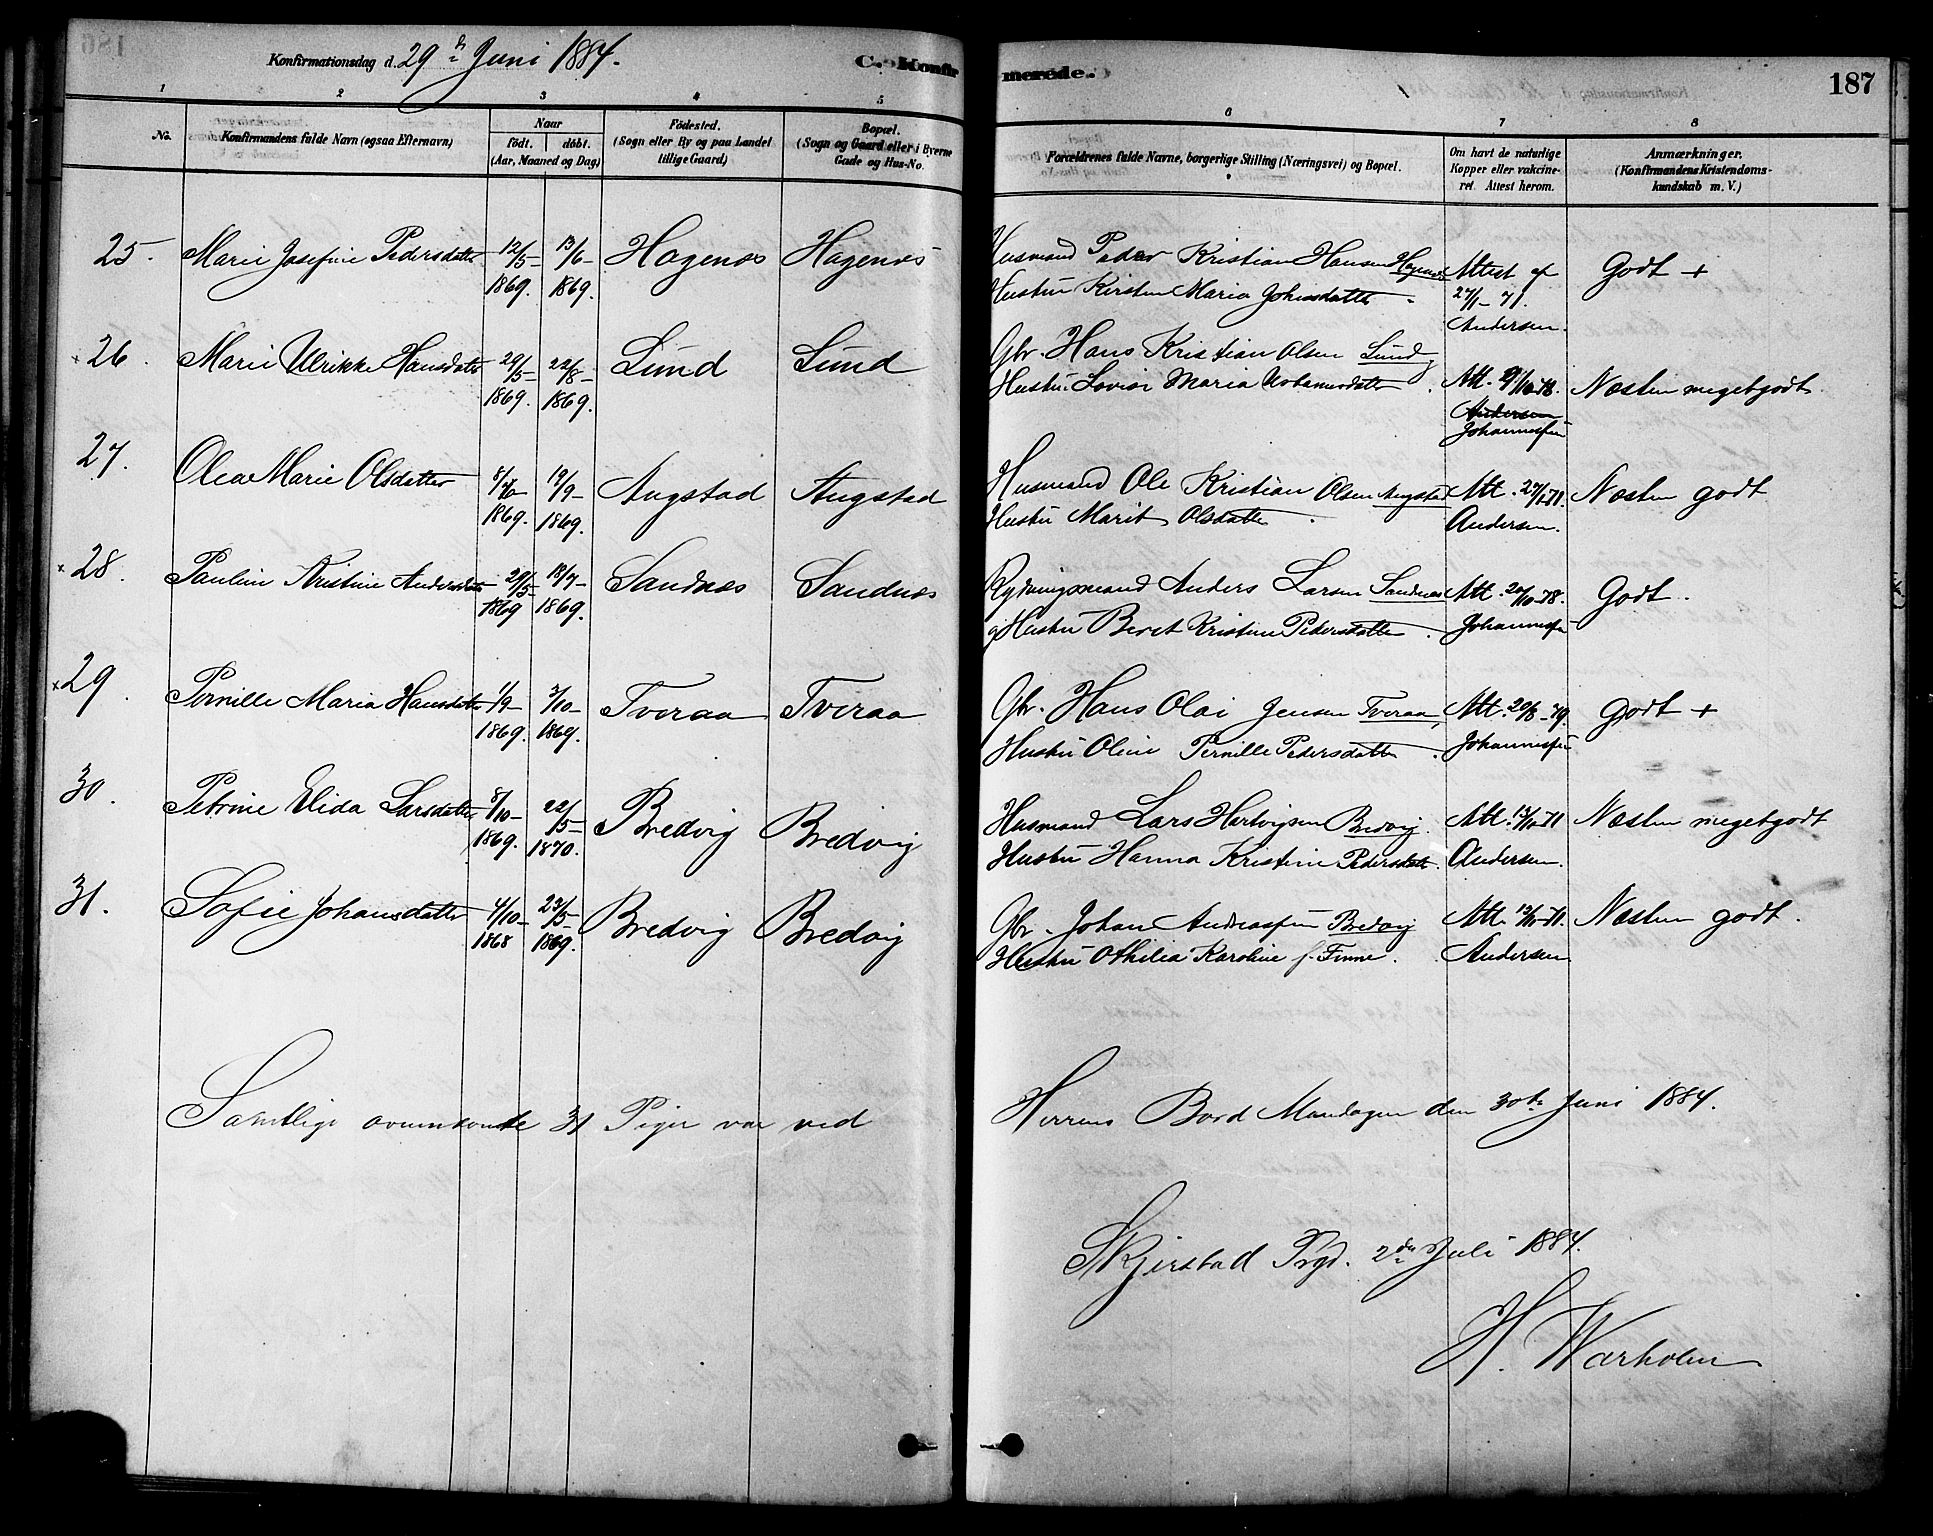 Konfirmationsdag d. 29de Juni 1884.
C. Konfirmerede.
187
1 2 3 4 5 6 7 8
No.
Konfirmandens fulde Navn (ogsaa Efternavn)
Naar
födt. döbt.
(Aar, Maaned og Dag)
Födested.
(Sogn eller By og paa Landet
tillige Gaard)
Bopæl.
(Sogn og Gaard eller i Byerne
Gade og Hus-No.
Forældrenes fulde Navne, borgerlige Stilling (Næringsvei) og Bopæl.
Om havt de naturlige
Kopper eller vakcine-
ret. Attest herom.
Anmærkninger.
(Konfirmandens Kristendoms-
kundskab m. V.)
25. Marie Josefine Pedersdatter 12/5- 13/6- Hagenæs Hagenæs Husmand Peder Kristian Hansen Hagenæs Attest af Godt +
1869. 1869. Hustru Kirsten Maria Johnsdatter. 27/1-71.
Andersen.
x 26. Marie Ulrikke Hansdatter 29/5- 22/8- Lund Lund Gbr. Hans Kristian Olsen Lund
1869. 1869. Hustru Lovise Maria Urbanusdatter. Att. 9/10-78. Næsten meget godt.
Andersen
Johannessen
27. Olea Marie Olsdatter 8/7- 19/9- Augstad Augstad Husmand Ole Kristian Olsen Augstad Att. 27/1-71. Næsten godt
1869. 1869. Hustru Marit Olsdatter. Andersen.
x 28. Pauline Kristine Andersdatter 29/5- 18/7- Sandnæs Sandnæs Rydningsmand Anders Larsen Sandnæs Att. 20/10-78. Godt.
1869 1869. Hustru Beret Kristine Pedersdatter. Johannessen
x 29. Pernille Maria Hansdatter 1/9- 3/10- Tveraa Tveraa Gbr. Hans Olai Jensen Tveraa, Att. 20/8-79. Godt +
1869. 1869. Hustru Oline Pernille Pedersdatter. Johannessen
30. Petrine Elida Larsdatter 8/10- 22/5- Bredvig Bredvig Husmand Lars Hartvigsen Bredvig. Att. 13/10-71 Næsten meget godt
1869. 1870. Hustru Hanna Kristine Pedersdatt. Andersen.
31. Sofie Johansdatter 4/10- 23/5- Bredvig Bredvig Gbr. Johan Andreassen Bredvig Att. 13/10-71. Næsten godt.
1868 1869. Hustru Othilia Karoline f. Finne. Andersen
Samtlige ovennævnte 31 Piger var ved Herrens Bord Mandagen den 30te Juni 1884.
Skjerstad Prgd. 2den Juli 1884.
H. Warholm